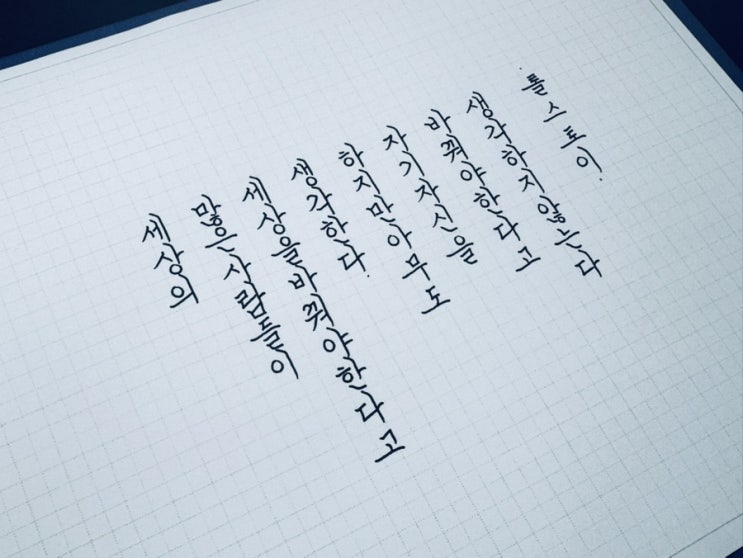 세상의
많은사람들이
세상을바꿔야한다고
생각한다.
하지만아무도
자기자신을
바꿔야한다고
생각하지않는다
톨스토이.